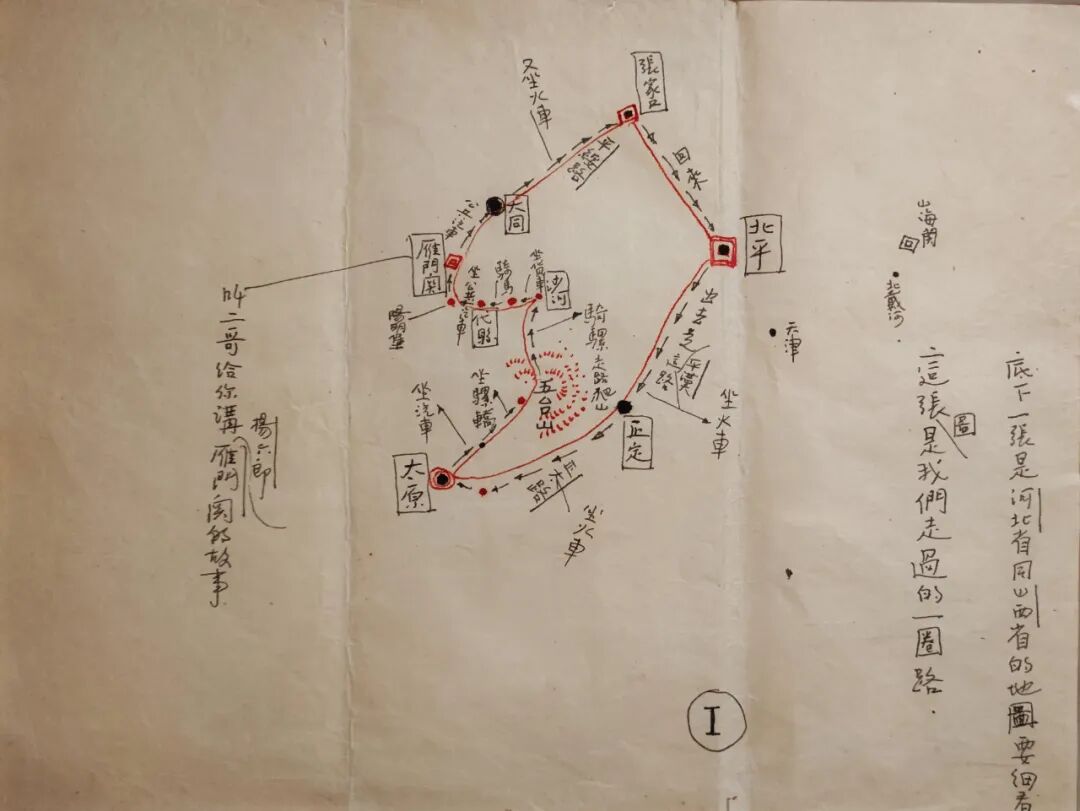 底下一張是河北省同山西省的地圖要細看
這張圖是我們走過的一圈路.
山海關
北戴河
天津
張家口
又坐火車
平綏路
回來
北平
大同
坐汽車
雁門關
陽明堡
坐公共汽車
代縣
騎馬
坐貨車
沙河
騎騾走路爬山
五台山
坐騾轎
坐汽車
太原
出去走平漢這路
坐火車
正定
正太路
坐火車
叫二哥給你講楊六郎雁門關的故事
I